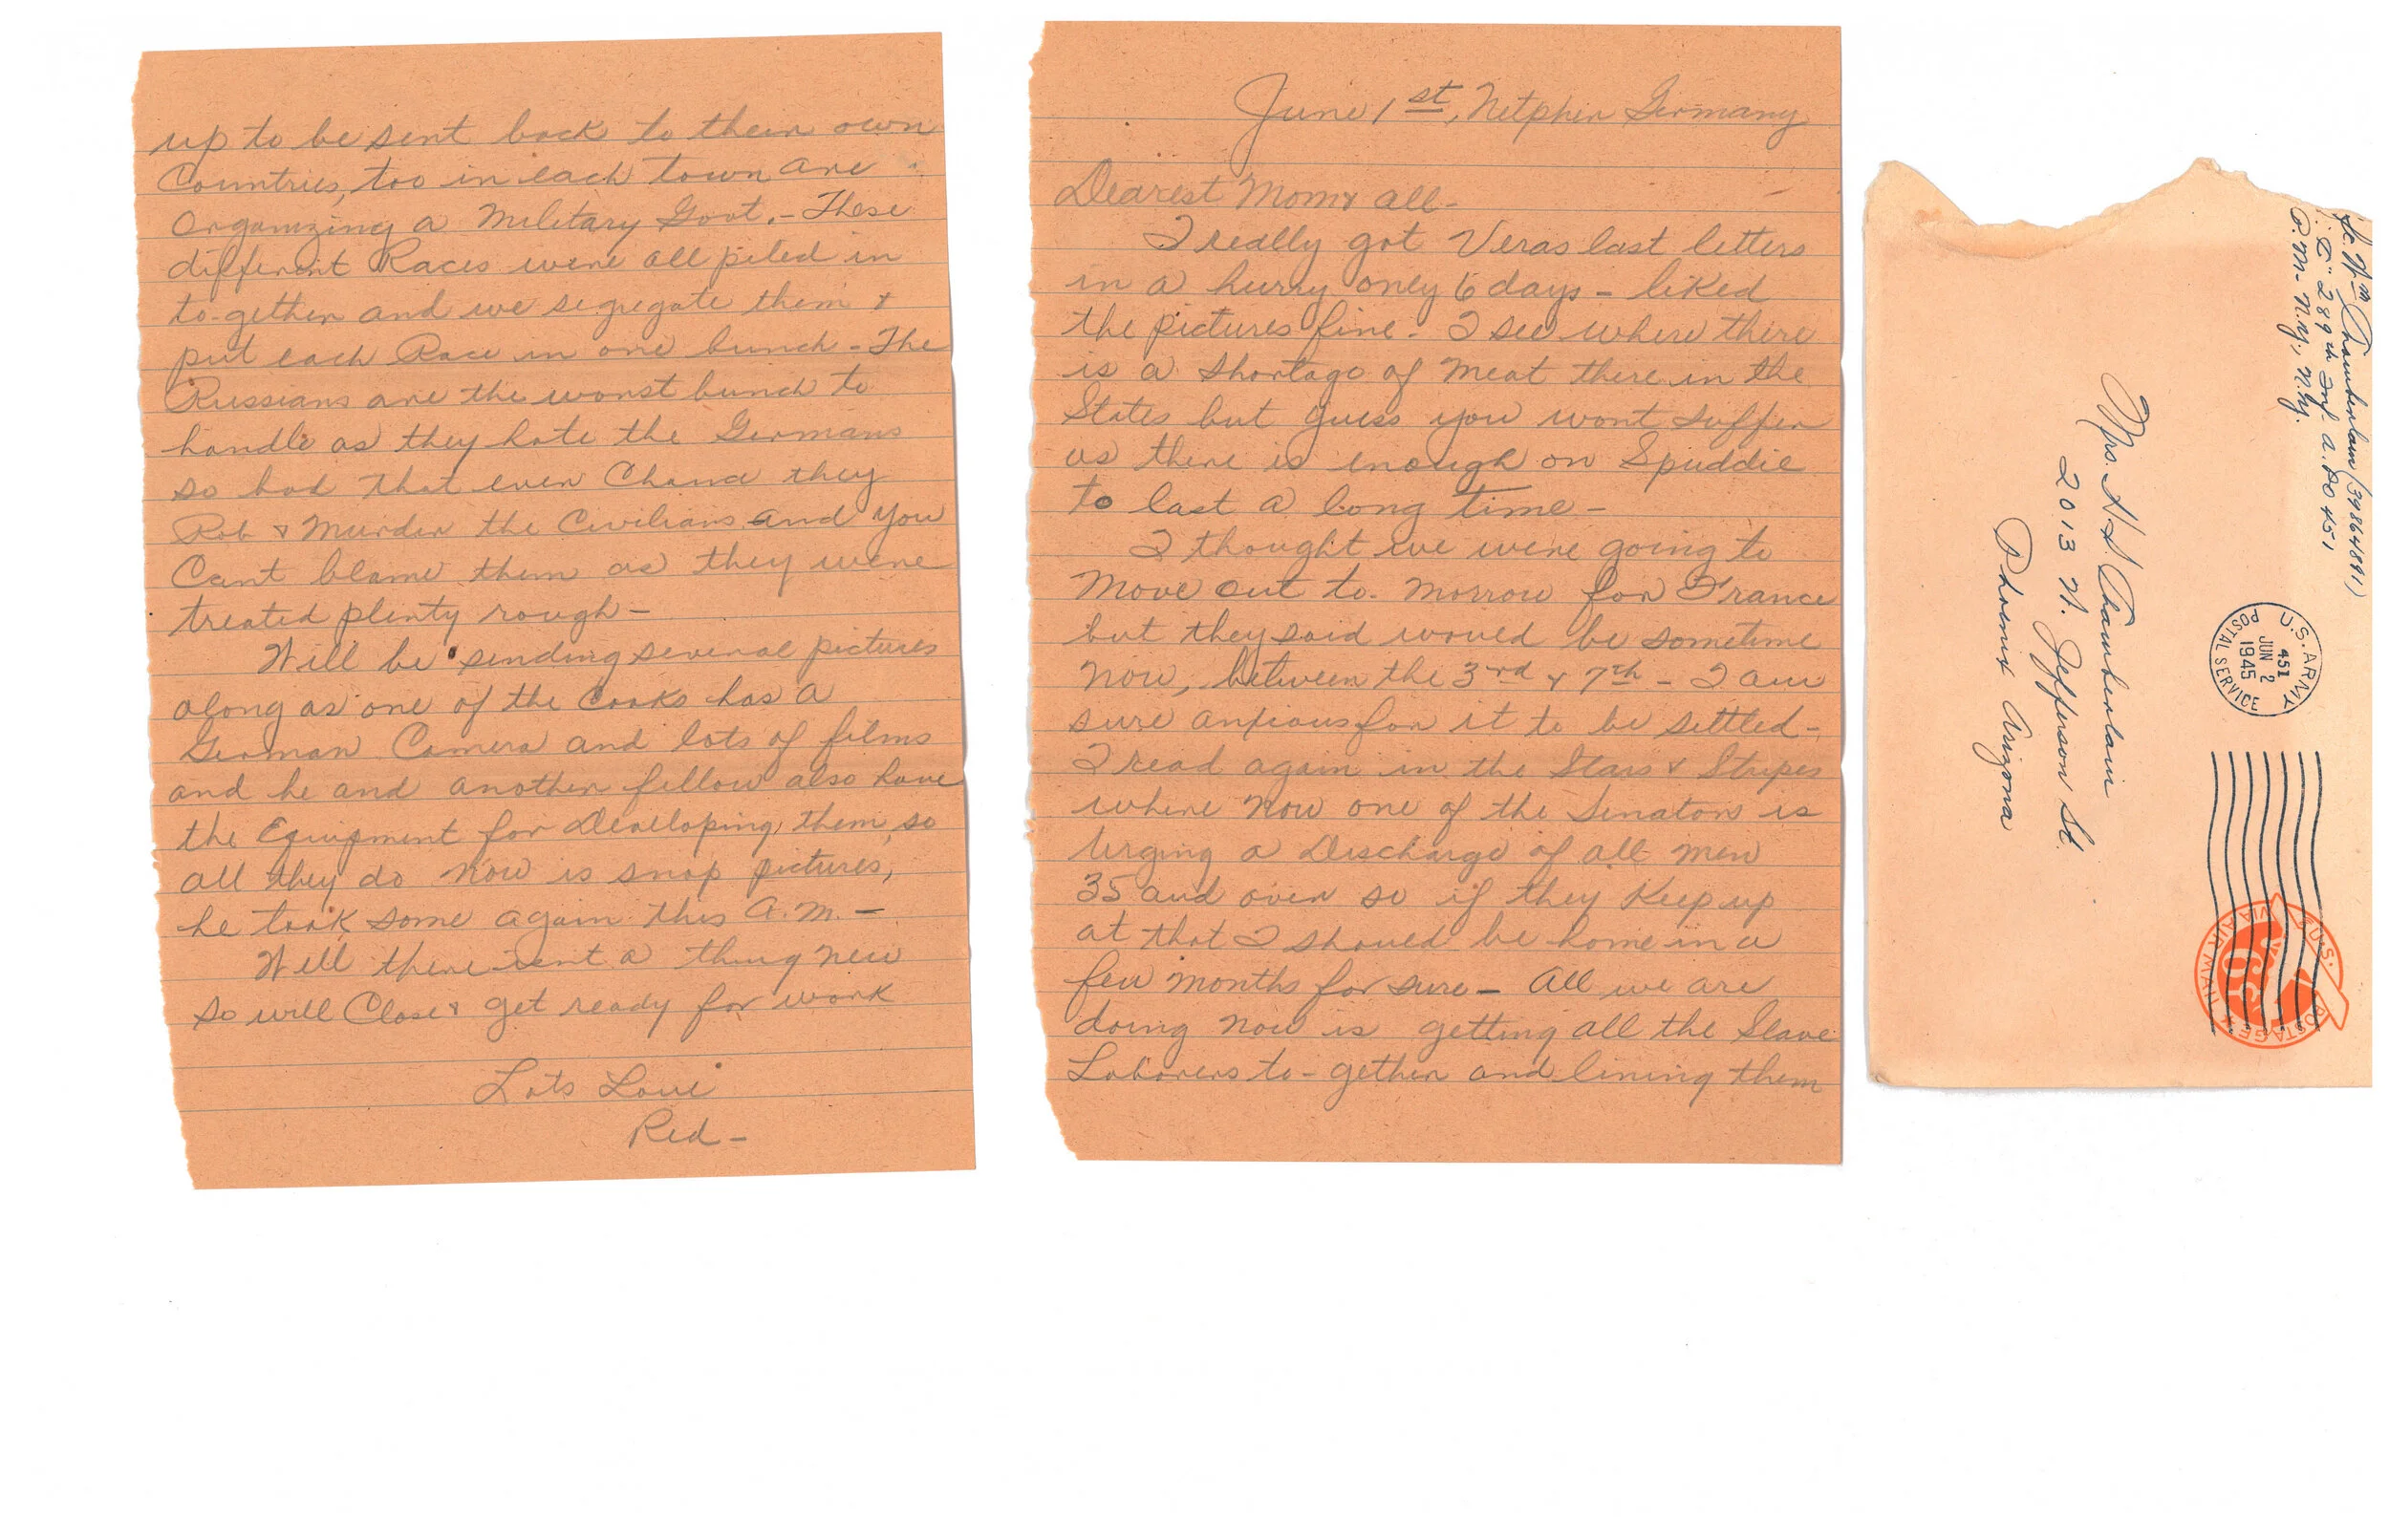 June 1st, Netphen Germany
Dearest Mom & all-
I really got Veras last letters
in a hurry only 6 days - liked
the pictures fine. I see where there
is a shortage of meat there in the
States but guess you wont suffer
as there is enough on Spuddie
to last a long time -
I thought we were going to
Move out to-morrow for France
but they said would be sometime
now, between the 3rd & 7th - I am
sure anxious for it to be settled -
I read again in the Stars & Stripes
where now one of the Senators is
Urging a Discharge of all men
35 and over so if they Keep up
at that I should be home in a
few months for sure - All we are
doing now is getting all the Slave
Laborers to-gether and lining them
up to be sent back to their own
Countries, too in each town are
organizing a Military Govt. - These
different Races were all piled in
to-gether and we segregate them &
put each Race in one bunch - The
Russians are the worst bunch to
handle as they hate the Germans
so bad that ever Chance they
Rob & Murder the Civilians and you
Cant blame them as they were
treated plenty rough -
Will be sending several pictures
along as one of the Cooks has a
German Camera and lots of films
and he and another fellow also have
the Equipment for Devolloping them, so
all they do now is snap pictures,
he took some again this A.M. -
Well there isnt a thing new
so will Close & get ready for work
Lots Love
Red -
Wm Chamberlain (39864891)
289th Inf A.P.O 451
P.M. - N.Y., N.Y.
U.S. ARMY
451
JUN 2
1945
POSTAL SERVICE
U.S. POSTAGE
VIA AIR MAIL
Mrs. H.S. Chamberlain
2013 W. Jefferson St.
Phoenix Arizona